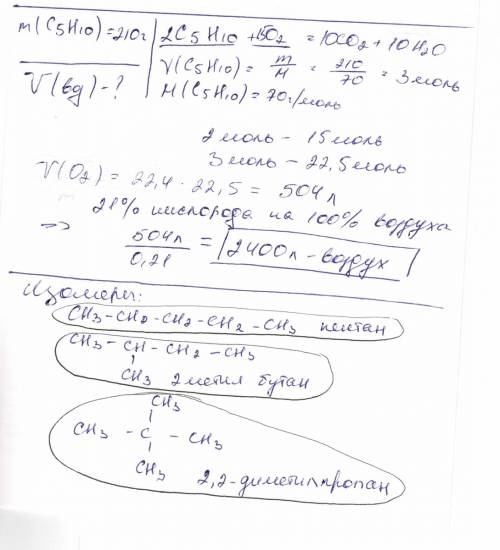 m(C5H10)=210г
V(вg)-?
2C5H10 + 15O2 = 10CO2 + 10H2O
γ(C5H10) = m/M = 210/70 = 3 моль
M(C5H10) = 70г/моль
2 моль - 15 моль
3 моль - 22,5 моль
V(O2) = 22,4 · 22,5 = 504 л
21% кислорода на 100% воздуха
=> 504л/0,21 = 2400л - воздух
Изомеры:
CH3-CH2-CH2-CH2-CH3 пентан
CH3-CH-CH2-CH3
CH3 2 метил бутан
CH3
CH3 - C - CH3
CH3
2,2-диметилпропан